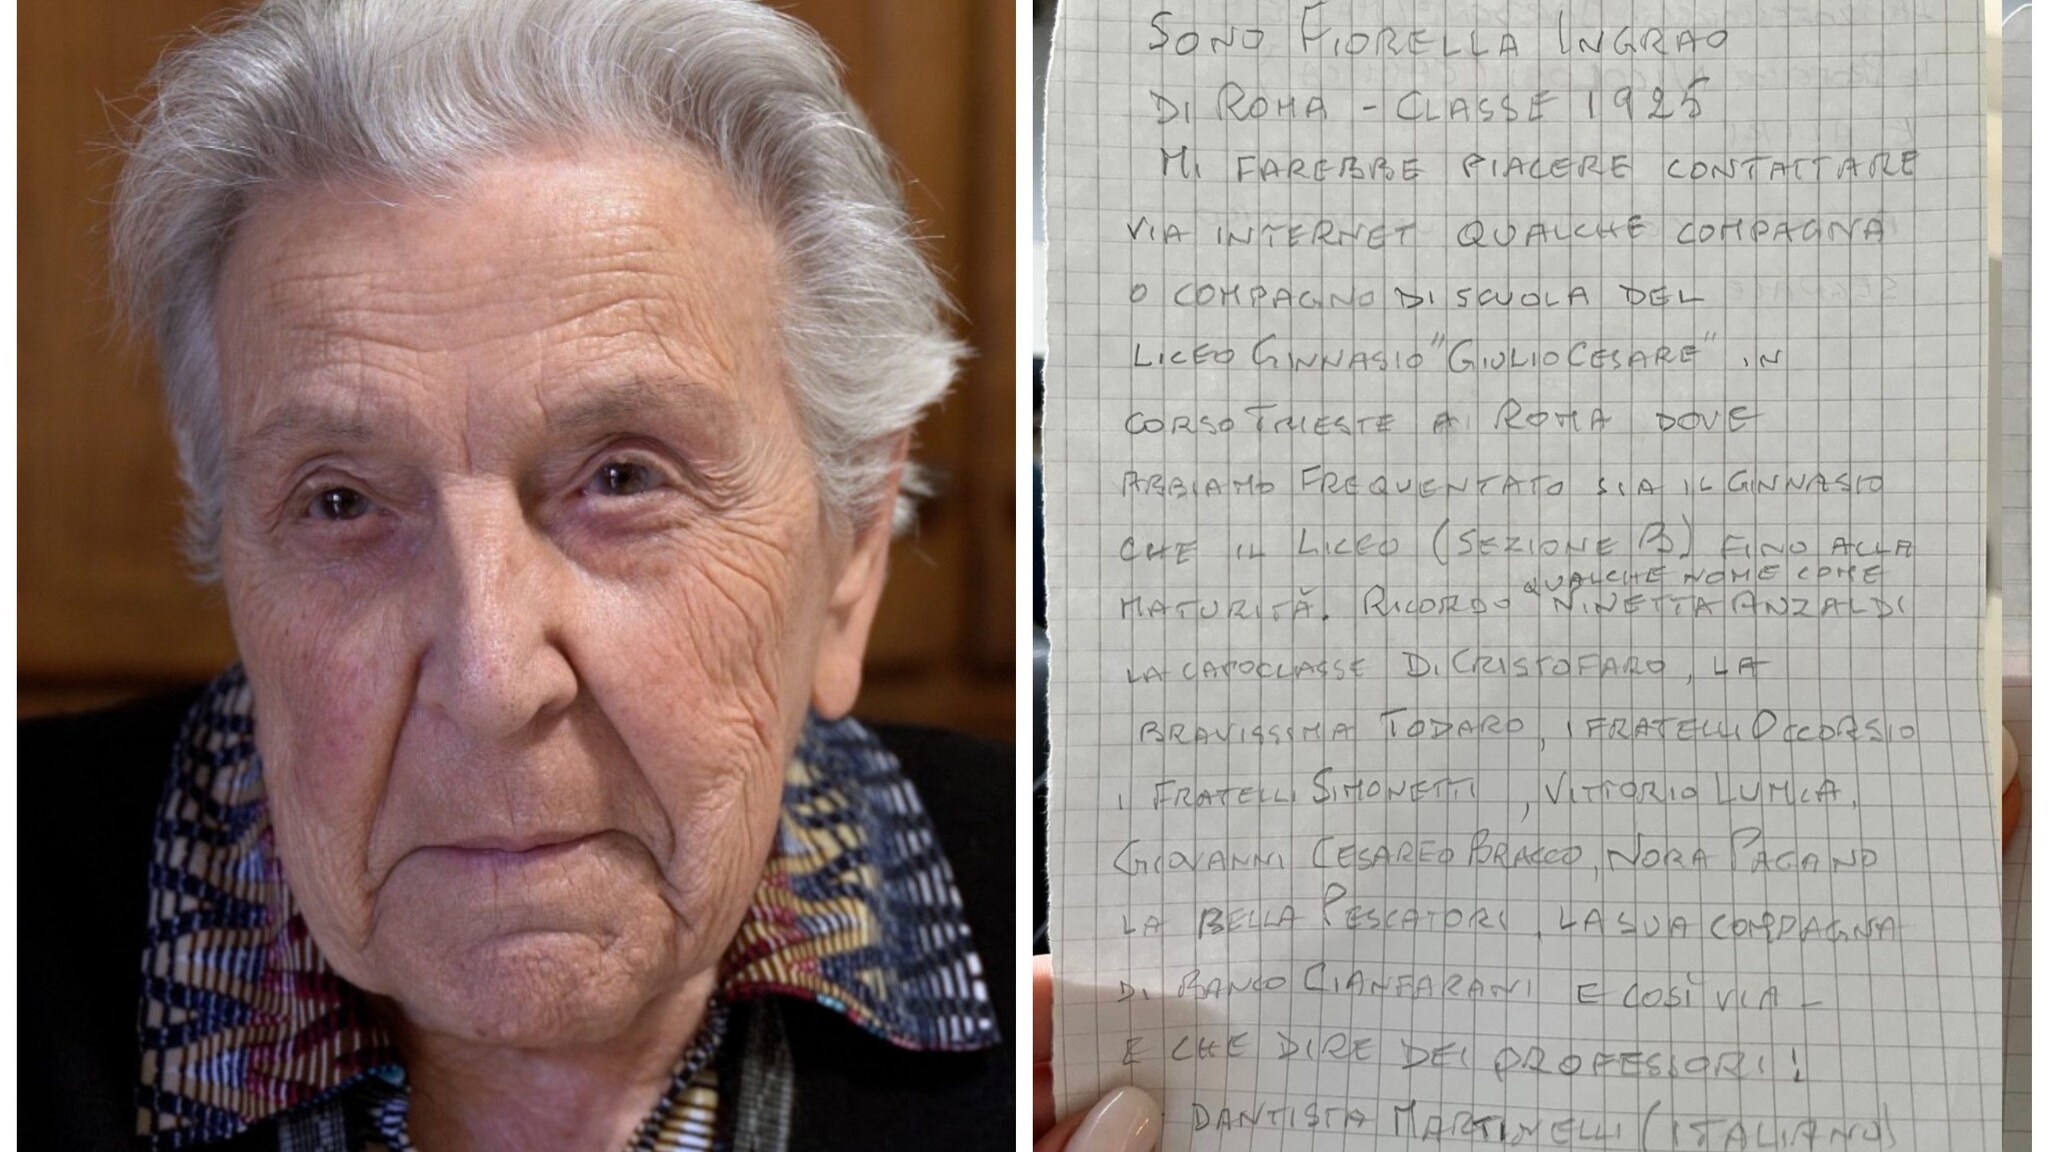 SONO FIORELLA INGRAO
DI ROMA - CLASSE 1925
MI FAREBBE PIACERE CONTATTARE
VIA INTERNET QUALCHE COMPAGNA
O COMPAGNO DI SCUOLA DEL
LICEO GINNASIO "GIULIO CESARE" IN
CORSO TRIESTE A ROMA DOVE
ABBIAMO FREQUENTATO SIA IL GINNASIO
CHE IL LICEO (SEZIONE B) FINO ALLA
QUALCHE NOME COME
MATURITÀ. RICORDO NINETTA ANZALDI
LA CAPOCLASSE DI CRISTOFARO, LA
BRAVISSIMA TODARO, I FRATELLI OCCORSIO
I FRATELLI SIMONETTI, VITTORIO
GIOVANNI CESAREO BRACCO, NORA PAGANO
LA BELLA PESCATORI, LA SUA COMPAGNA
DI BANCO CIANFARANI E COSÌ VIA -
E CHE DIRE DEI PROFESSORI!
DANTISTA MARTINELLI (ITALIANO)